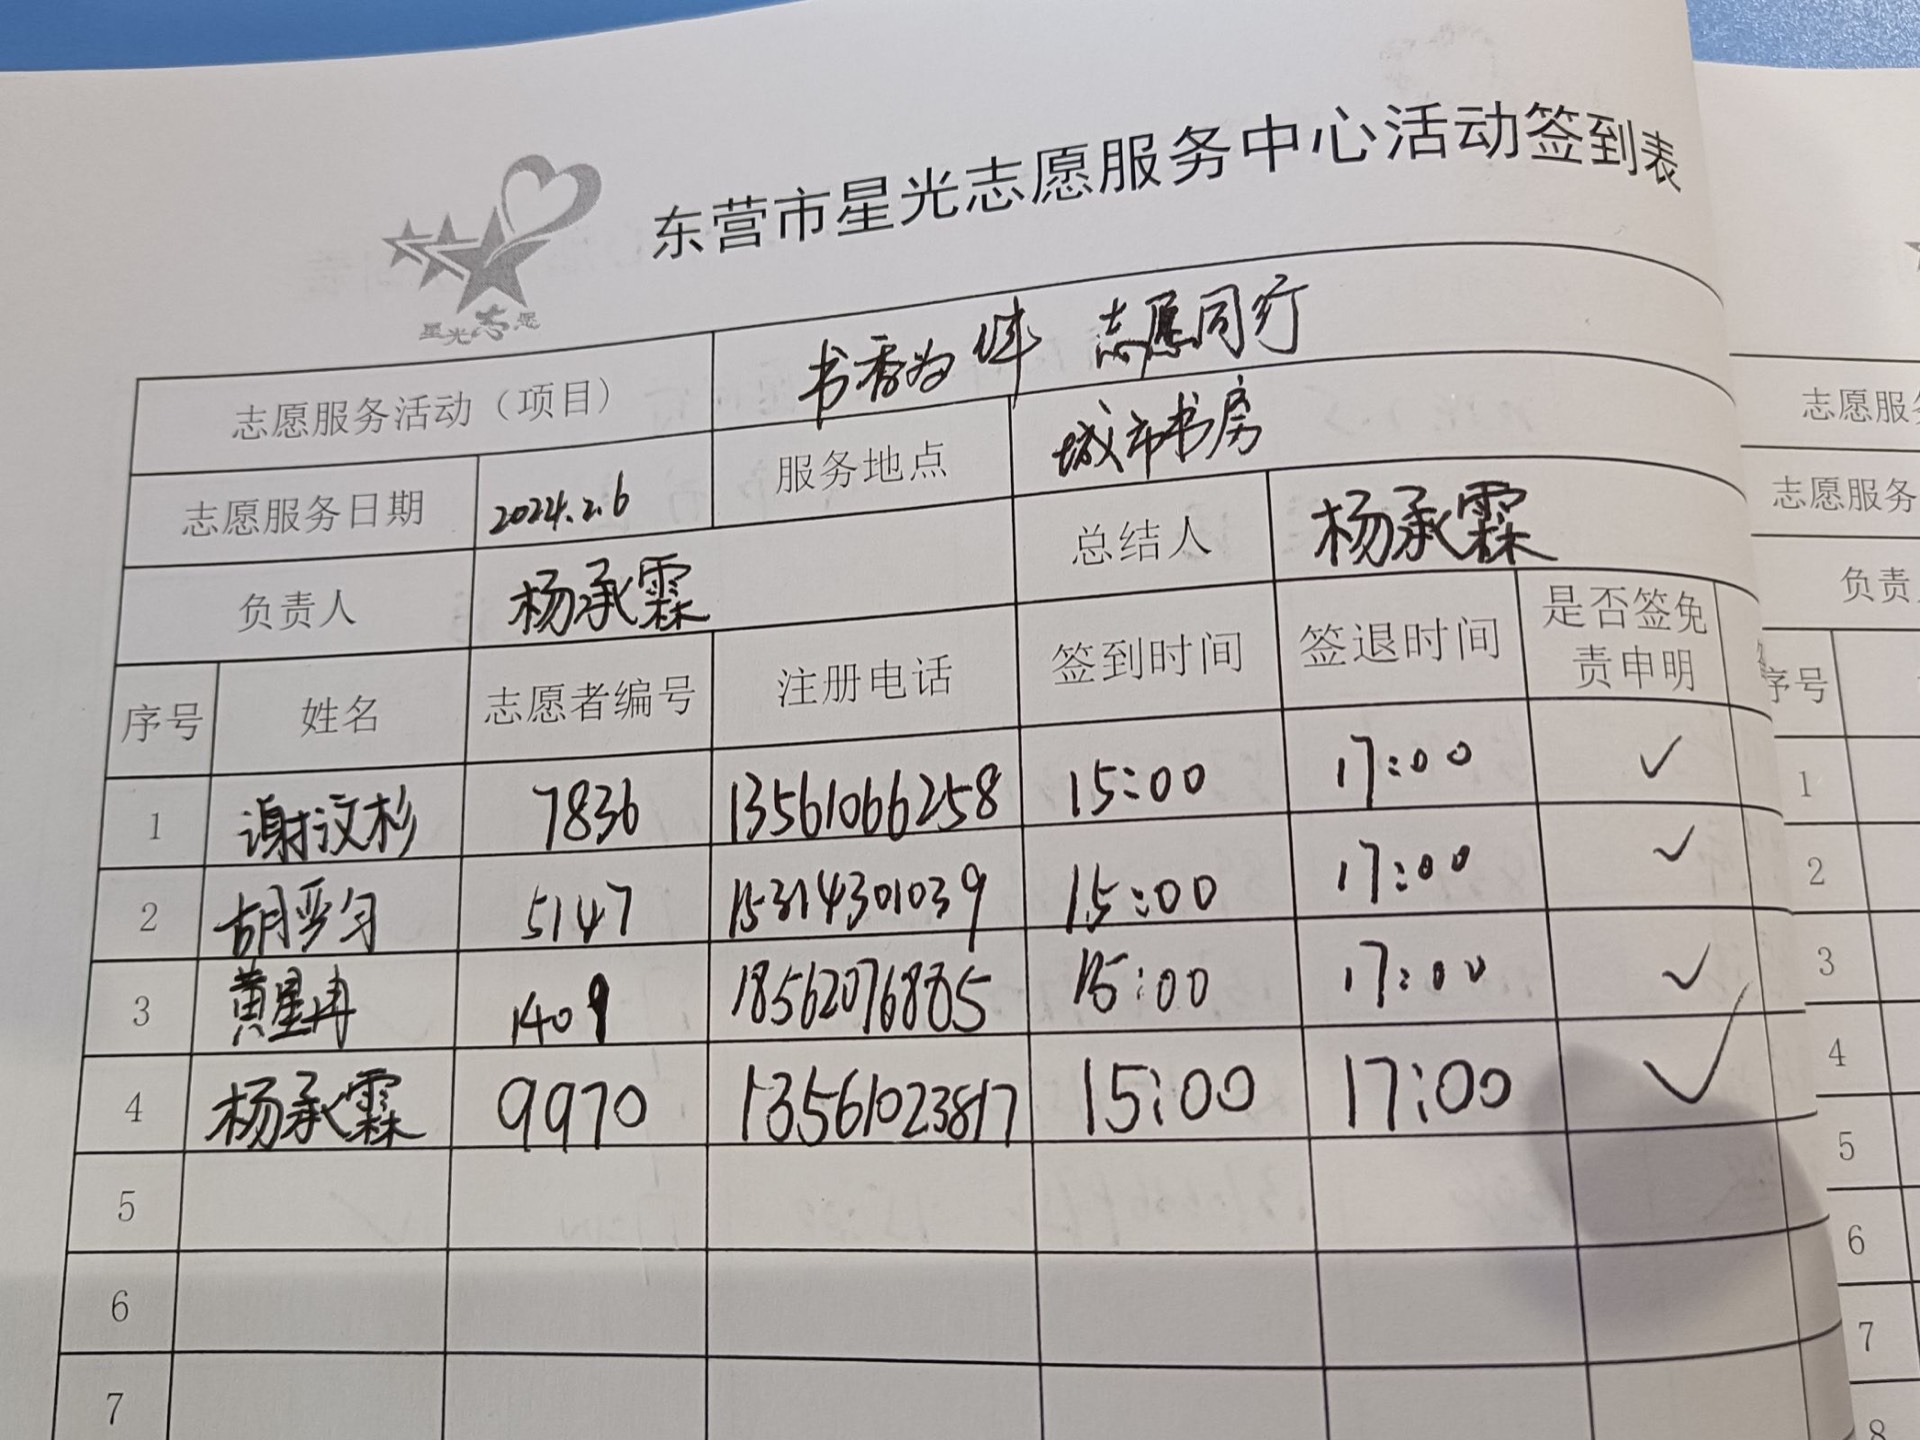 东营市星光志愿服务中心活动签到表
星光志愿
志愿服务活动（项目） 书香为伴 志愿同行
志愿服务日期 2024.2.6 服务地点 城市书房
负责人 杨承霖 总结人 杨承霖
序号 姓名 志愿者编号 注册电话 签到时间 签退时间 是否签免责申明
1 谢汶杉 7836 13561066258 15:00 17:00 ✓
2 5147 15314301039 15:00 17:00 ✓
3 黄星冉 1409 15:00 17:00 ✓
4 杨承霖 9970 13561023817 15:00 17:00 ✓
5
6
7
志愿服
志愿服务
负责
序号
1
2
3
4
5
6
7
8